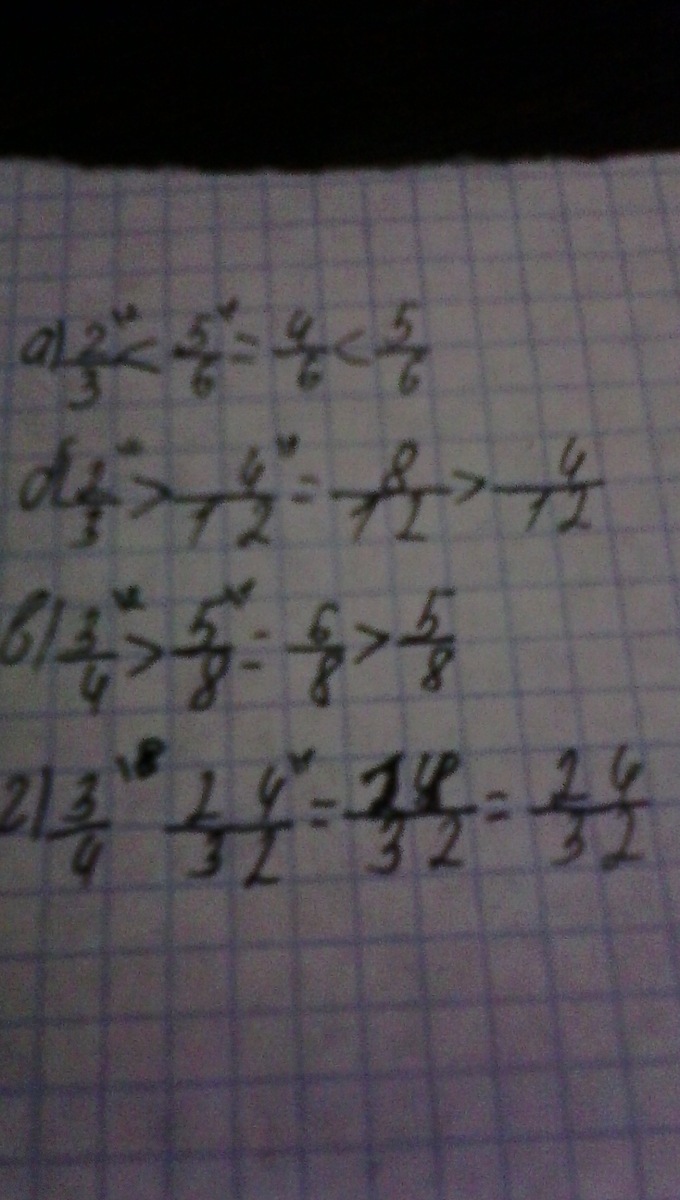 а) 2/3 < 5/6 = 4/6 < 5/6
б) 2/3 > 4/12 = 8/12 > 4/12
в) 3/4 > 5/8 = 6/8 > 5/8
г) 3/4 \8 24/32 = 24/32 = 24/32